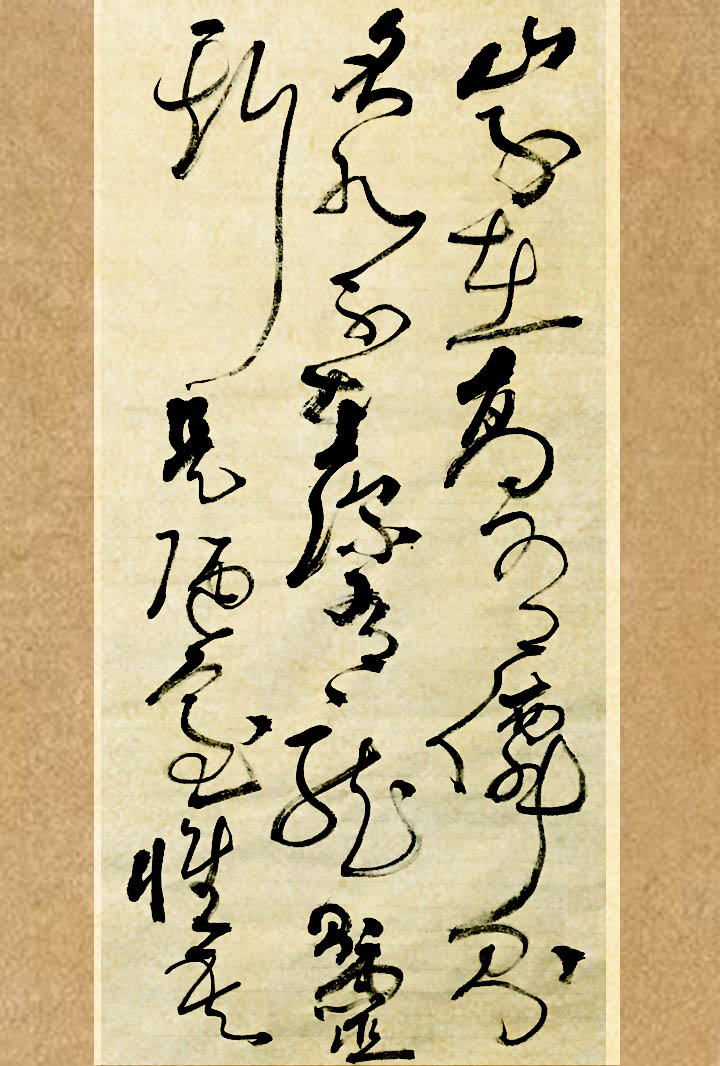 山不在高有僊則
名水不在深有龍靈
斯是陋室惟吾